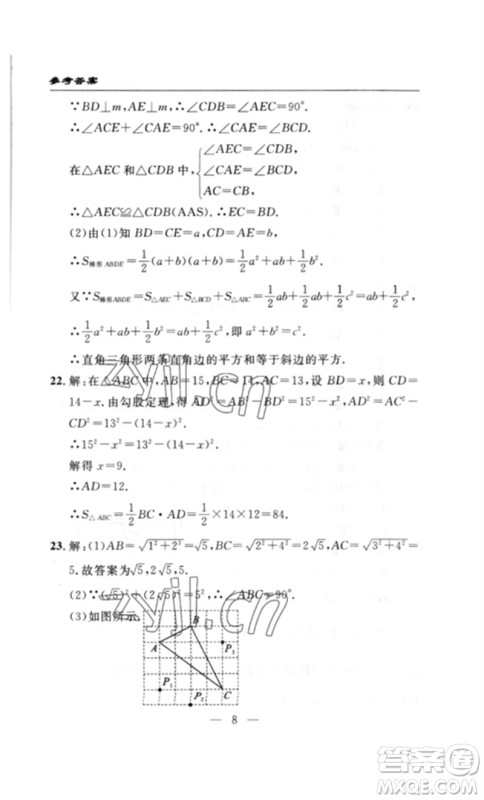 参考答案
∵BD⊥m,AE⊥m,∴∠CDB=∠AEC=90°.
∴∠ACE+∠CAE=90°,∴∠CAE=∠BCD.
在△AEC和△CDB中,{∠AEC=∠BCD,
∠CAE=∠BCD,
AC=CB,
∴△AEC≌△CDB(AAS).∴EC=BD.
(2)由(1)知 BD=CE=a,CD=AE=b,
∴S梯形ABDE=1/2(a+b)(a+b)=1/2a²+ab+1/2b².
又∵S梯形ABDE=S△AEC+S△BCD+S△ABC=1/2ab+1/2ab+1/2c²=ab+1/2c².
∴1/2a²+ab+1/2b²=ab+1/2c²,即a²+b²=c².
∴直角三角形两条直角边的平方和等于斜边的平方.
22.解:在△ABC中,AB=15,BC=14,AC=13,设BD=x,CD=
14-x.由勾股定理,得AD²=AB²-BD²=15²-x²,AD²=AC²-
CD²=13²-(14-x)².
∴15²-x²=13²-(14-x)².
解得x=9.
∴AD=12.
∴S△ABC=1/2BC·AD=1/2×14×12=84.
23.解:(1)AB=√1²+2²=√5,BC=√2²+4²=2√5,AC=√3²+4²=
5.故答案为√5,2√5,5.
(2)∵(√5)²+(2√5)²=5²,∴∠ABC=90°.
(3)如图所示.
B
A
P₃
P₁
C
P₂
— 8 —
zyjl.cn
zyjl.cn